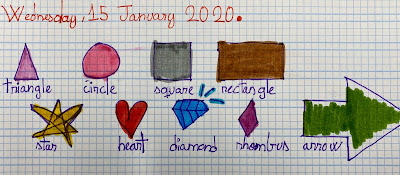 Wednesday, 15 January 2020.
triangle circle square rectangle
star heart diamond rhombus arrow